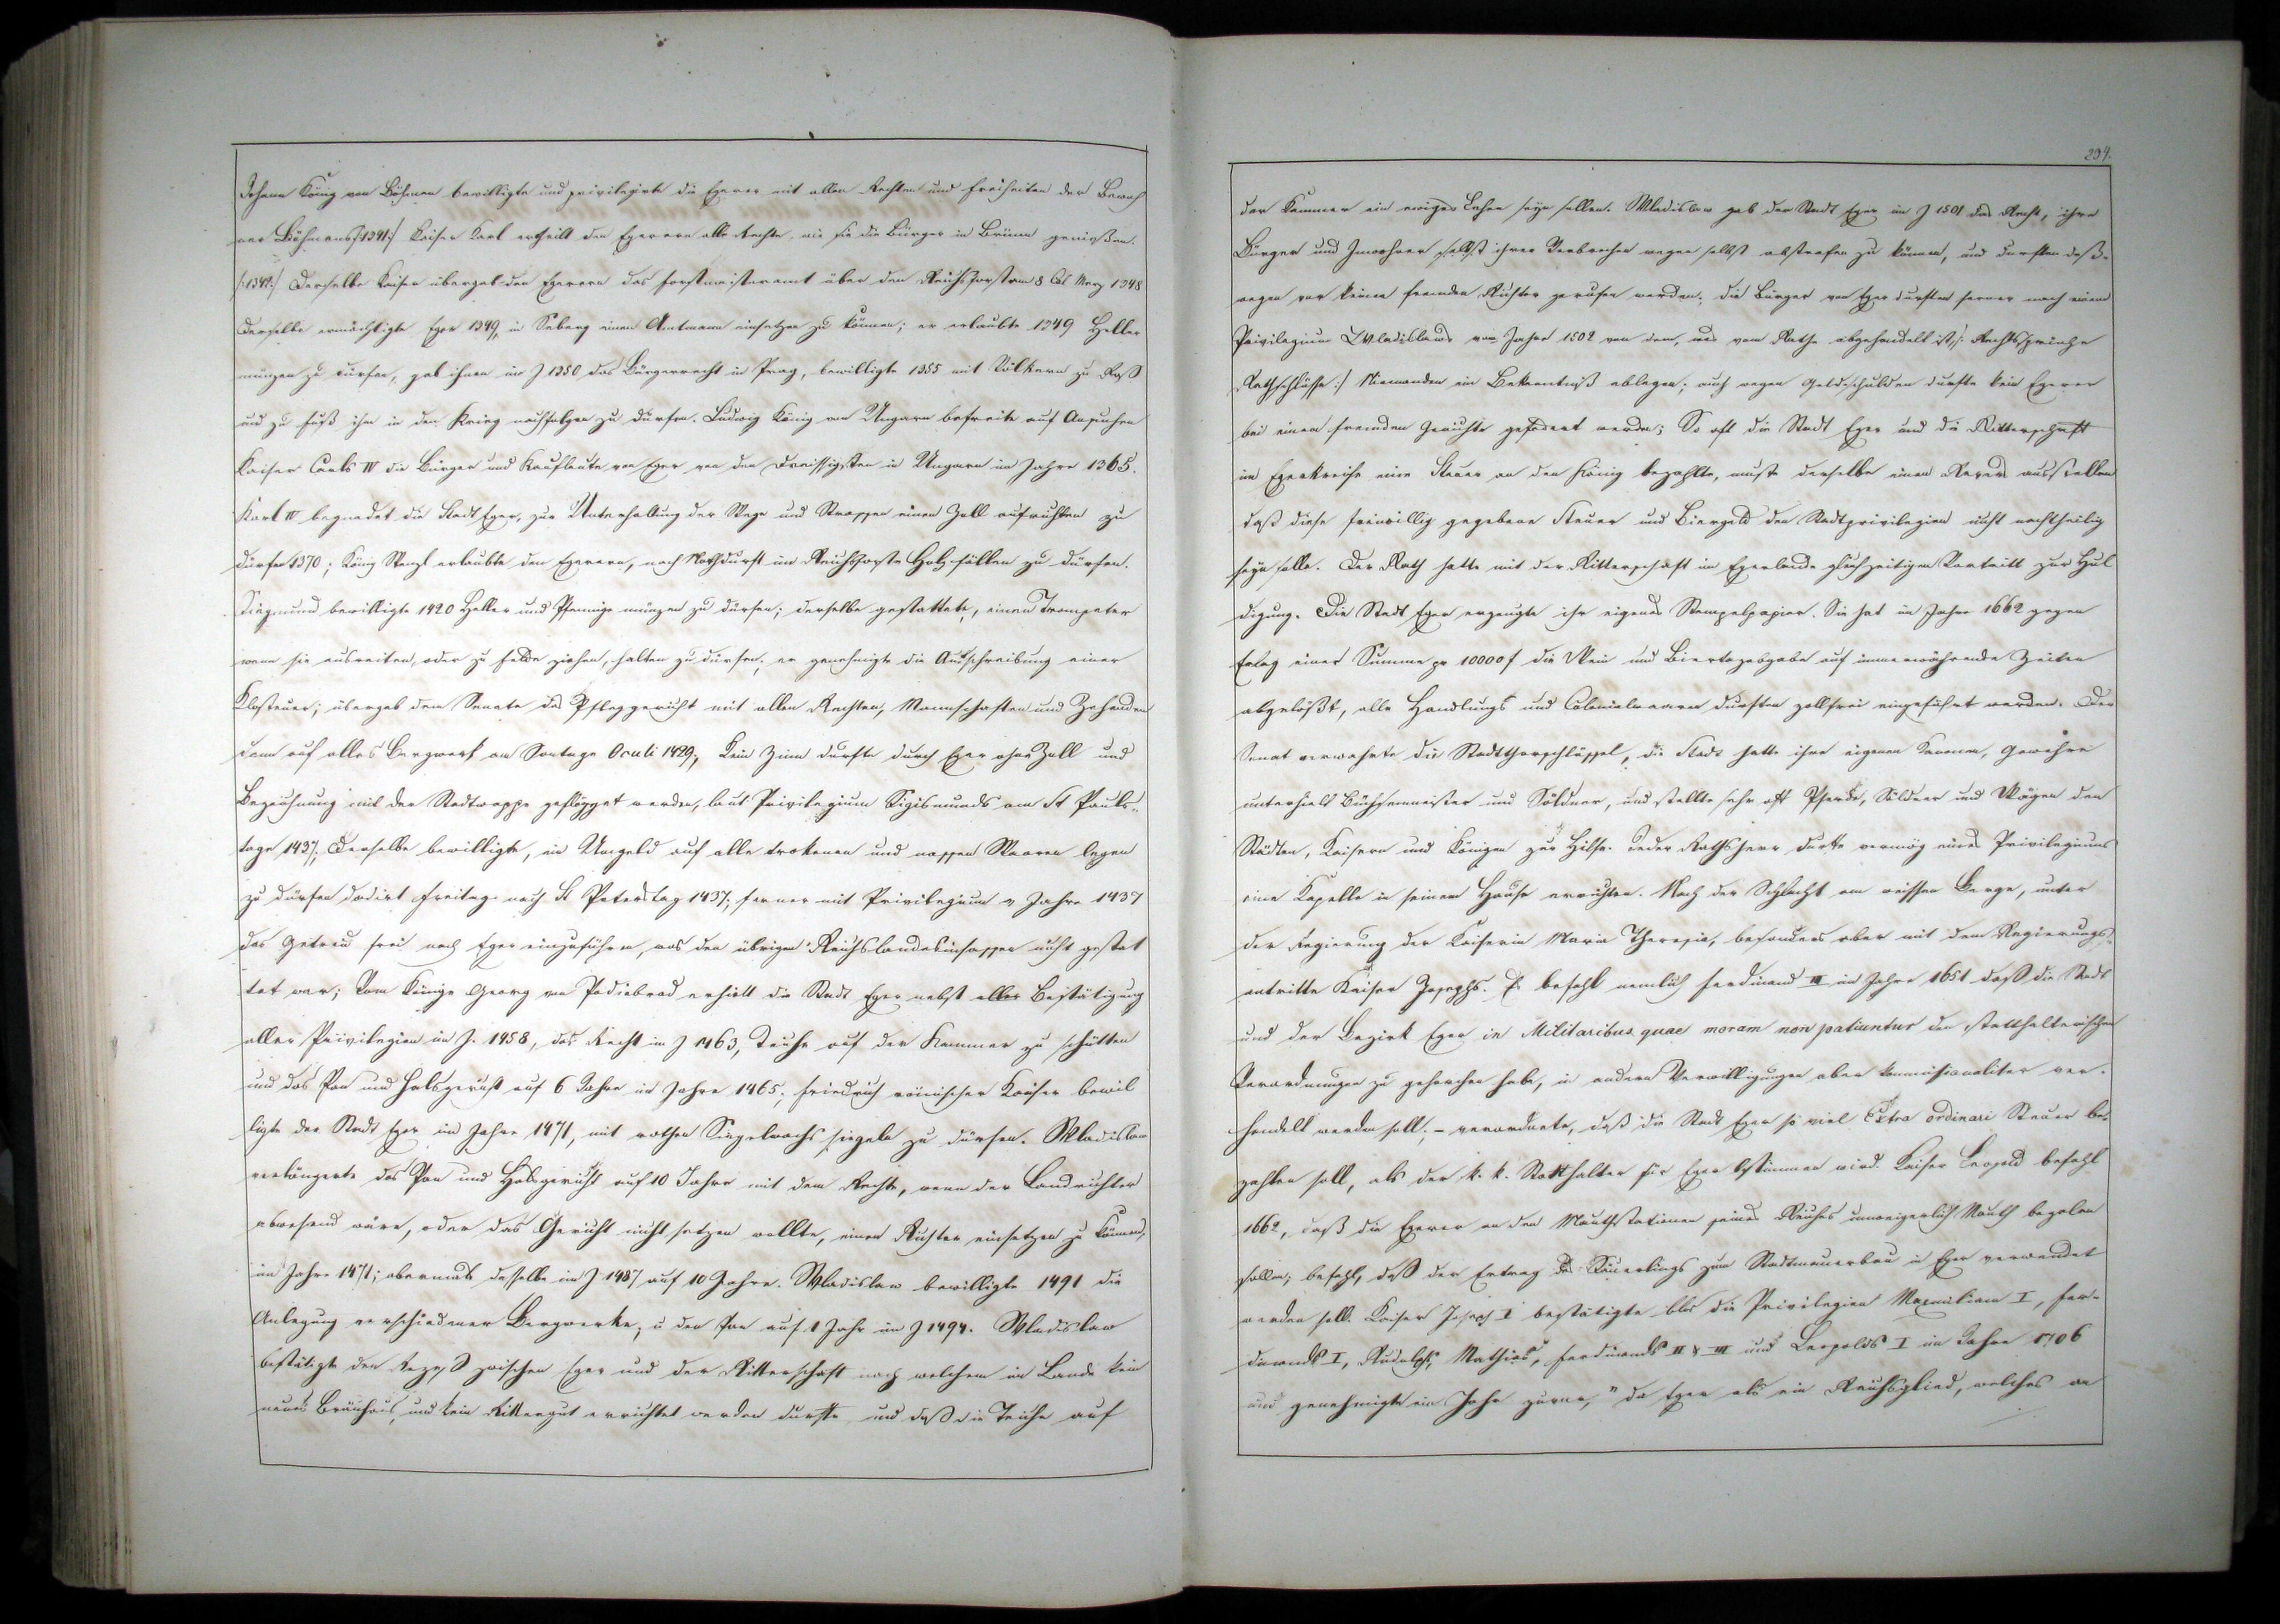 Johann König von Böhmen bewilligte und privilegirte die Egerer mit allen Rechten und Freiheiten der Bewoh
ner Böhmens /:1341:/ Kaiser Karl ertheilt den Egerern alle Rechte, wie sie die Bürger in Brünn genießen.
/:1342:/ Derselbe Kaiser übergab den Egerern das Forstmeisteramt über den Reichsforst am 8 Cal Merz 1348
Derselbe ermächtigte Eger 1349, in Seberg einen Amtmann einsetzen zu können; er erlaubte 1349 Heller
münzen zu dürfen, gab ihnen im J 1350 das Bürgerrecht in Prag, bewilligte 1355 mit Völkern zu Roß
und zu Fuß ihm in den Krieg nachfolgen zu dürfen. Ludwig König von Ungarn befreite auf Ansuchen
Kaiser Carls IV die Bürger und Kaufleute von Eger von den Dreissigsten in Ungarn im Jahre 1365.
Karl IV begnadet die Stadt Eger, zur Unterhaltung der Wege und Strassen einen Zoll aufrichten zu
dürfen 1370; König Wenzl erlaubte den Egerern, nach Nothdurft im Reichsforste Holz fällen zu dürfen.
Siegmund bewilligte 1420 Heller und Pfennige münzen zu dürfen; derselbe gestattete, einen Trompeter
wenn sie ausreiten, oder zu Felde ziehen, halten zu dürfen; er genehmigte die Ausschreibung einer
Klosteuer; übergab dem Senate das Pfleggericht mit allen Rechten, Mannschaften und Zehenden
dann auf alles Bergwerk am Sontage Oculi 1429; Kein Zinn durfte durch Eger ohne Zoll und
Bezeichnung mit der Stadtwappe geflößt werden, laut Privilegium Sigismunds am St Pauls-
tage 1437; Derselbe bewilligte, ein Umgeld auf alle trokenen und nassen Waaren legen
zu dürfen dadirt Freitag nach St Peterstag 1437; ferner mit Privilegium v Jahre 1437
das Getreid frei nach Eger einzuführen, was den übrigen Reichslandesinsassen nicht gestat
tet war; Vom Könige Georg von Podiebrad erhielt die Stadt Eger nebst alles Bestätigung
aller Privilegien im J. 1458, das Recht im J 1463, Teiche auf der Kammer zu schütten
und das Pan und Halsgericht auf 6 Jahre im Jahre 1465; Friedrich römischer Kaiser bewil
ligte der Stadt Eger im Jahre 1471, mit rothen Siegelwachs siegeln zu dürfen. Wladislaw
verlängerte das Pan und Halsgericht auf 10 Jahre mit dem Rechte, wenn der Landrichter
abwesend wäre, oder das Gericht nicht setzen wollte, einen Richter einsetzen zu können,
im Jahre 1471; abermals dasselbe im J 1487 auf 10 Jahre. Wladislaw bewilligte 1491 die
Anlegung verschiedener Bergwerke, u den Pan auf 1 Jahr im J 1494. Wladislaw
bestätigte den Rezeß zwischen Eger und der Ritterschaft nach welchem im Lande kein
neues Bräuhaus, und kein Rittergut errichtet werden durfte, und daß die Teiche auf
239.
der Kammer ein ewiges Lehen seyn sollen. Wladislaw gab der Stadt Eger im J 1501 das Recht, ihre
Bürger und Inwohner selbst ihrer Verbrechen wegen selbst abstrafen zu können, und durften deß-
wegen vor keinen fremden Richter gerufen werden; die Bürger von Eger durften ferner nach einem
Privilegium Wladislaws vom Jahre 1502 von dem, was vom Rathe abgehandelt ist /: Rechtssprüche
Rathschlüsse :/ Niemanden ein Bekenntniß ablegen; auch wegen Geldschulden durfte kein Egerer
bei einem fremden Gerichte gefodert werden; So oft die Stadt Eger und die Ritterschaft
im Egerkreise eine Steuer an den König bezahlte, mußte derselbe einen Revers ausstellen
daß diese freiwillig gegebene Steuer und Biergeld den Stadtprivilegien nicht nachtheilig
seyn solle. Der Rath hatte mit der Ritterschaft im Egerlande gleichzeitigen Vortritt zur Hul
digung. Die Stadt Eger erzeugte ihr eigenes Stempelpapier. Sie hat im Jahre 1662 gegen
Erlag einer Summe pr 10000 f die Wein und Biertazabgabe auf immerwährende Zeiten
abgelößt, alle Handlungs und Colonialwaaren durften zollfrei eingeführt werden. Der
Senat verwahrte die Stadtthorschlüssel, die Stadt hatte ihre eigenen Kanonen, Gewehre
unterhielt Büchsenmeister und Söldner, und stellte sehr oft Pferde, Söldner und Wägen den
Städten, Kaisern und Königen zur Hilfe. Jeder Rathsherr durfte vermög eines Privilegiums
eine Kapelle in seinem Hause errichten. Nach der Schlacht am weissen Berge, unter
der Regierung der Kaiserin Maria Theresia, besonders aber mit dem Regierungs-
antritte Kaiser Josephs. Es befahl nemlich Ferdinand III im Jahre 1651 daß die Stadt
und der Bezirk Eger in Militaribus quae moram non patiuntur den statthalterischen
Verordnungen zu gehorchen habe, in andern Verwilligungen aber kommissionaliter ver-
handelt werden soll; - verordnete, daß die Stadt Eger so viel Extra ordinari Steuer be-
zahlen soll, als der k. k. Statthalter für Eger bestimmen wird. Kaiser Leopold befahl
1662, daß die Egerer an den Mauthstationen seines Reiches unweigerlich Mauth bezalen
sollen; befahl, daß der Ertrag des Säuerlings zum Stadtmauerbau in Eger verwendet
werden soll. Kaiser Joseph I bestätigte blos die Privilegien Maxmilian I, Fer-
dinands I, Rudolphs, Mathias, Ferdinands II & III und Leopolds I im Jahre 1706
und genehmigte ein Jahr zuvor, " da Eger als ein Reichsglied, welches an